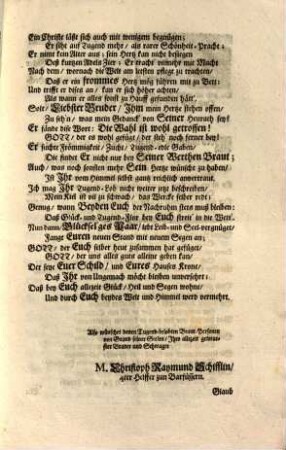 Ein Christe läßt sich auch mit wenigem begnügen;
Er sihe auf Tugend mehr / als rarer Schönheit-Pracht;
Er nimt kein Alter aus; sein Hertz kan nicht besiegen
Deß kurtzen Adels Zier; Er tracht vielmehr mit Macht
Nach dem / wornach die Welt am letsten pflegt zu trachten/
Daß er ein frommes Hertz mög führen mit zu Bett;
Und trifft er dises an / kan er sich höher achten/
Als wann er alles sonst zu Hauff gefunden hätt'.
Solt / Liebster Bruder / Ihm mein Hertze stehen offen/
Zu seh'n / was mein Gedanck' von Seiner Heurath sey?
Er fände dise Wort: Die Wahl ist wohl getroffen!
GOTT / der es wohl gefügt / der steh' noch ferner bey!
Er suchte Frömmigkeit / Zucht / Tugend-edle Gaben/
Die findet Er nicht nur bey Seiner Werthen Braut;
Auch / was noch sonsten mehr Sein Hertze wünscht zu haben/
Ist Ihr vom Himmel selbst gantz reichlich anvertraut.
Ich mag Ihr Tugend-Lob nicht weiter jetz beschreiben/
Mein Kiel ist vil zu schwach / das Wercke selber redt:
Genug / wann Beyden Euch der Nachruhm stets muß bleiben:
Daß Glück- und Tugend-Flor bey Euch
Nun dann / Glückselges Paar / lebt Leid- und Seel-vergnüget/
Fangt Euren neuen Stand mit neuem Segen an;
GOTT / der Euch selber heut zusammen hat gefüget/
GOTT / der uns alles guts alleine geben kan/
Der seye Euer Schild / und Eures Hauses Krone/
Daß Ihr von Ungemach möcht bleiben unversehrt:
Daß bey Euch allezeit Glück / Heil und Segen wohne/
Und durch Euch beydes Welt und Himmel werd vermehrt.
Also wünschet denen Tugend-belobten Braut-Personen
von Grund seiner Seelen / Ihro allezeit getreuster
Bruder und Schwager
M. Christoph Raymund Schifflin/
Helffer zun Barfüssern.
Glaub